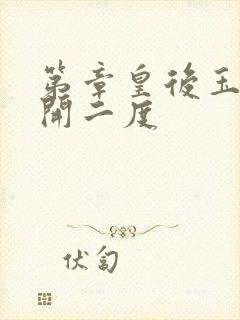 第章皇後玉
開二度
伏匐